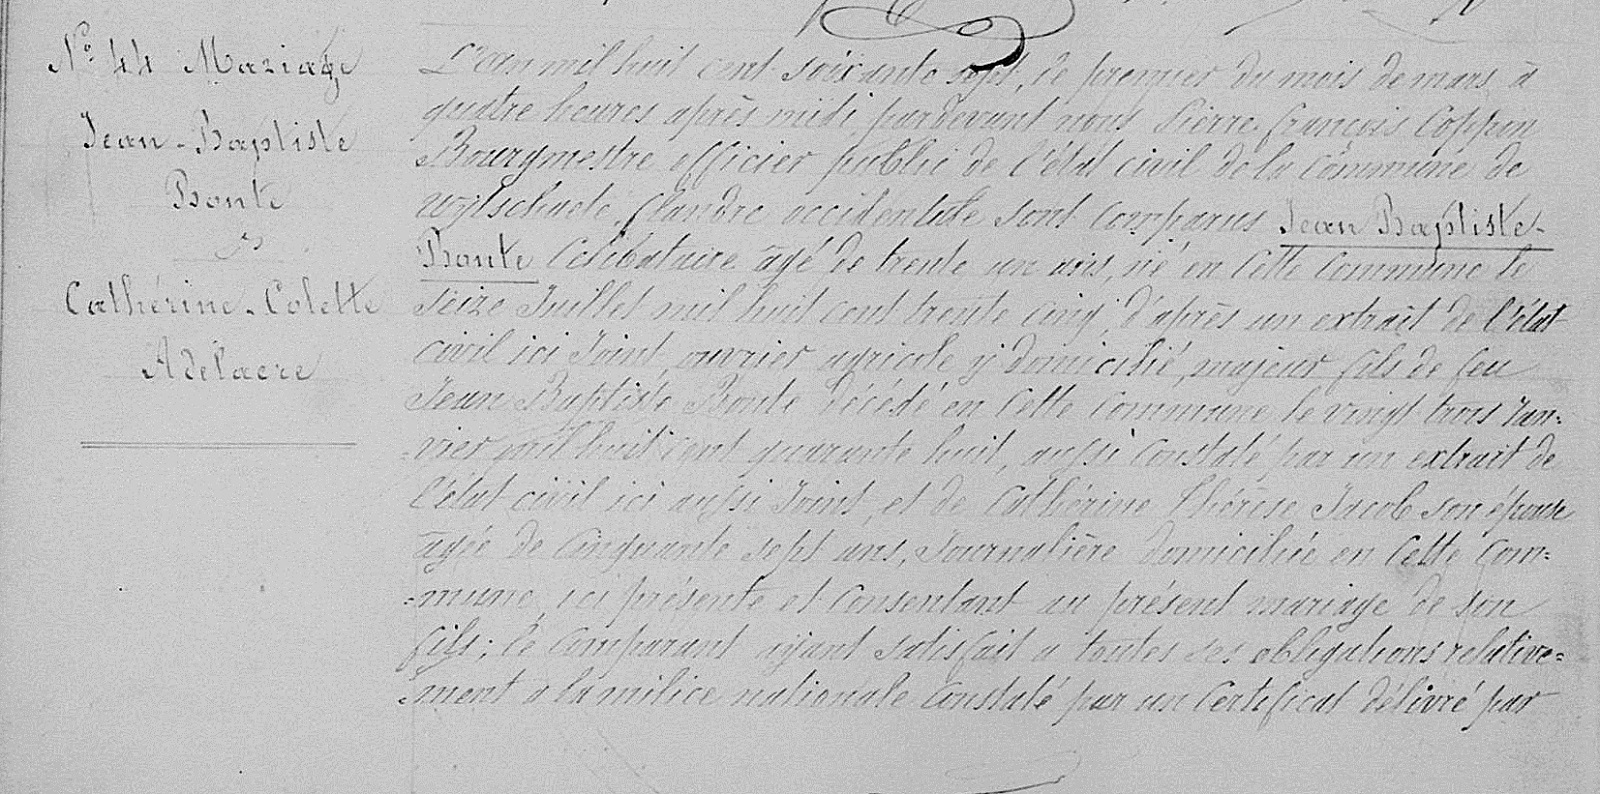 N.º 44 Mariage
Jean-Baptiste
Bonte
&
Cathérine-Colette
Adelaere
L'an mil huit cent soixante sept, le premier du mois de mars, à
quatre heures après midi, pardevant nous Pierre François Coppon
Bourgmestre officier public de l'état civil de la Commune de
Wytschaete, flandre occidentale sont comparus Jean Baptiste-
Bonte Célibataire âgé de trente un ans, né en Cette Commune le
seize Juillet mil huit cent trente cinq, d'après un extrait de l'état
civil ici Joint, ouvrier agricole y domicilié, majeur fils de feu
Jean Baptiste Bonte décédé en Cette Commune le vingt trois Jan=
=vier mil huit cent quarante huit, aussi Constaté par un extrait de
l'état civil ici aussi Joint, et de Cathérine Thérèse Jacob son épouse
âgée de Cinquante sept ans, Journalière domiciliée en Cette Com=
=mune, ici présente et Consentant au présent mariage de son
fils; le Comparant ayant satisfait a toutes ses obligations relative=
=ment a la milice nationale Constaté par un Certificat délivré par